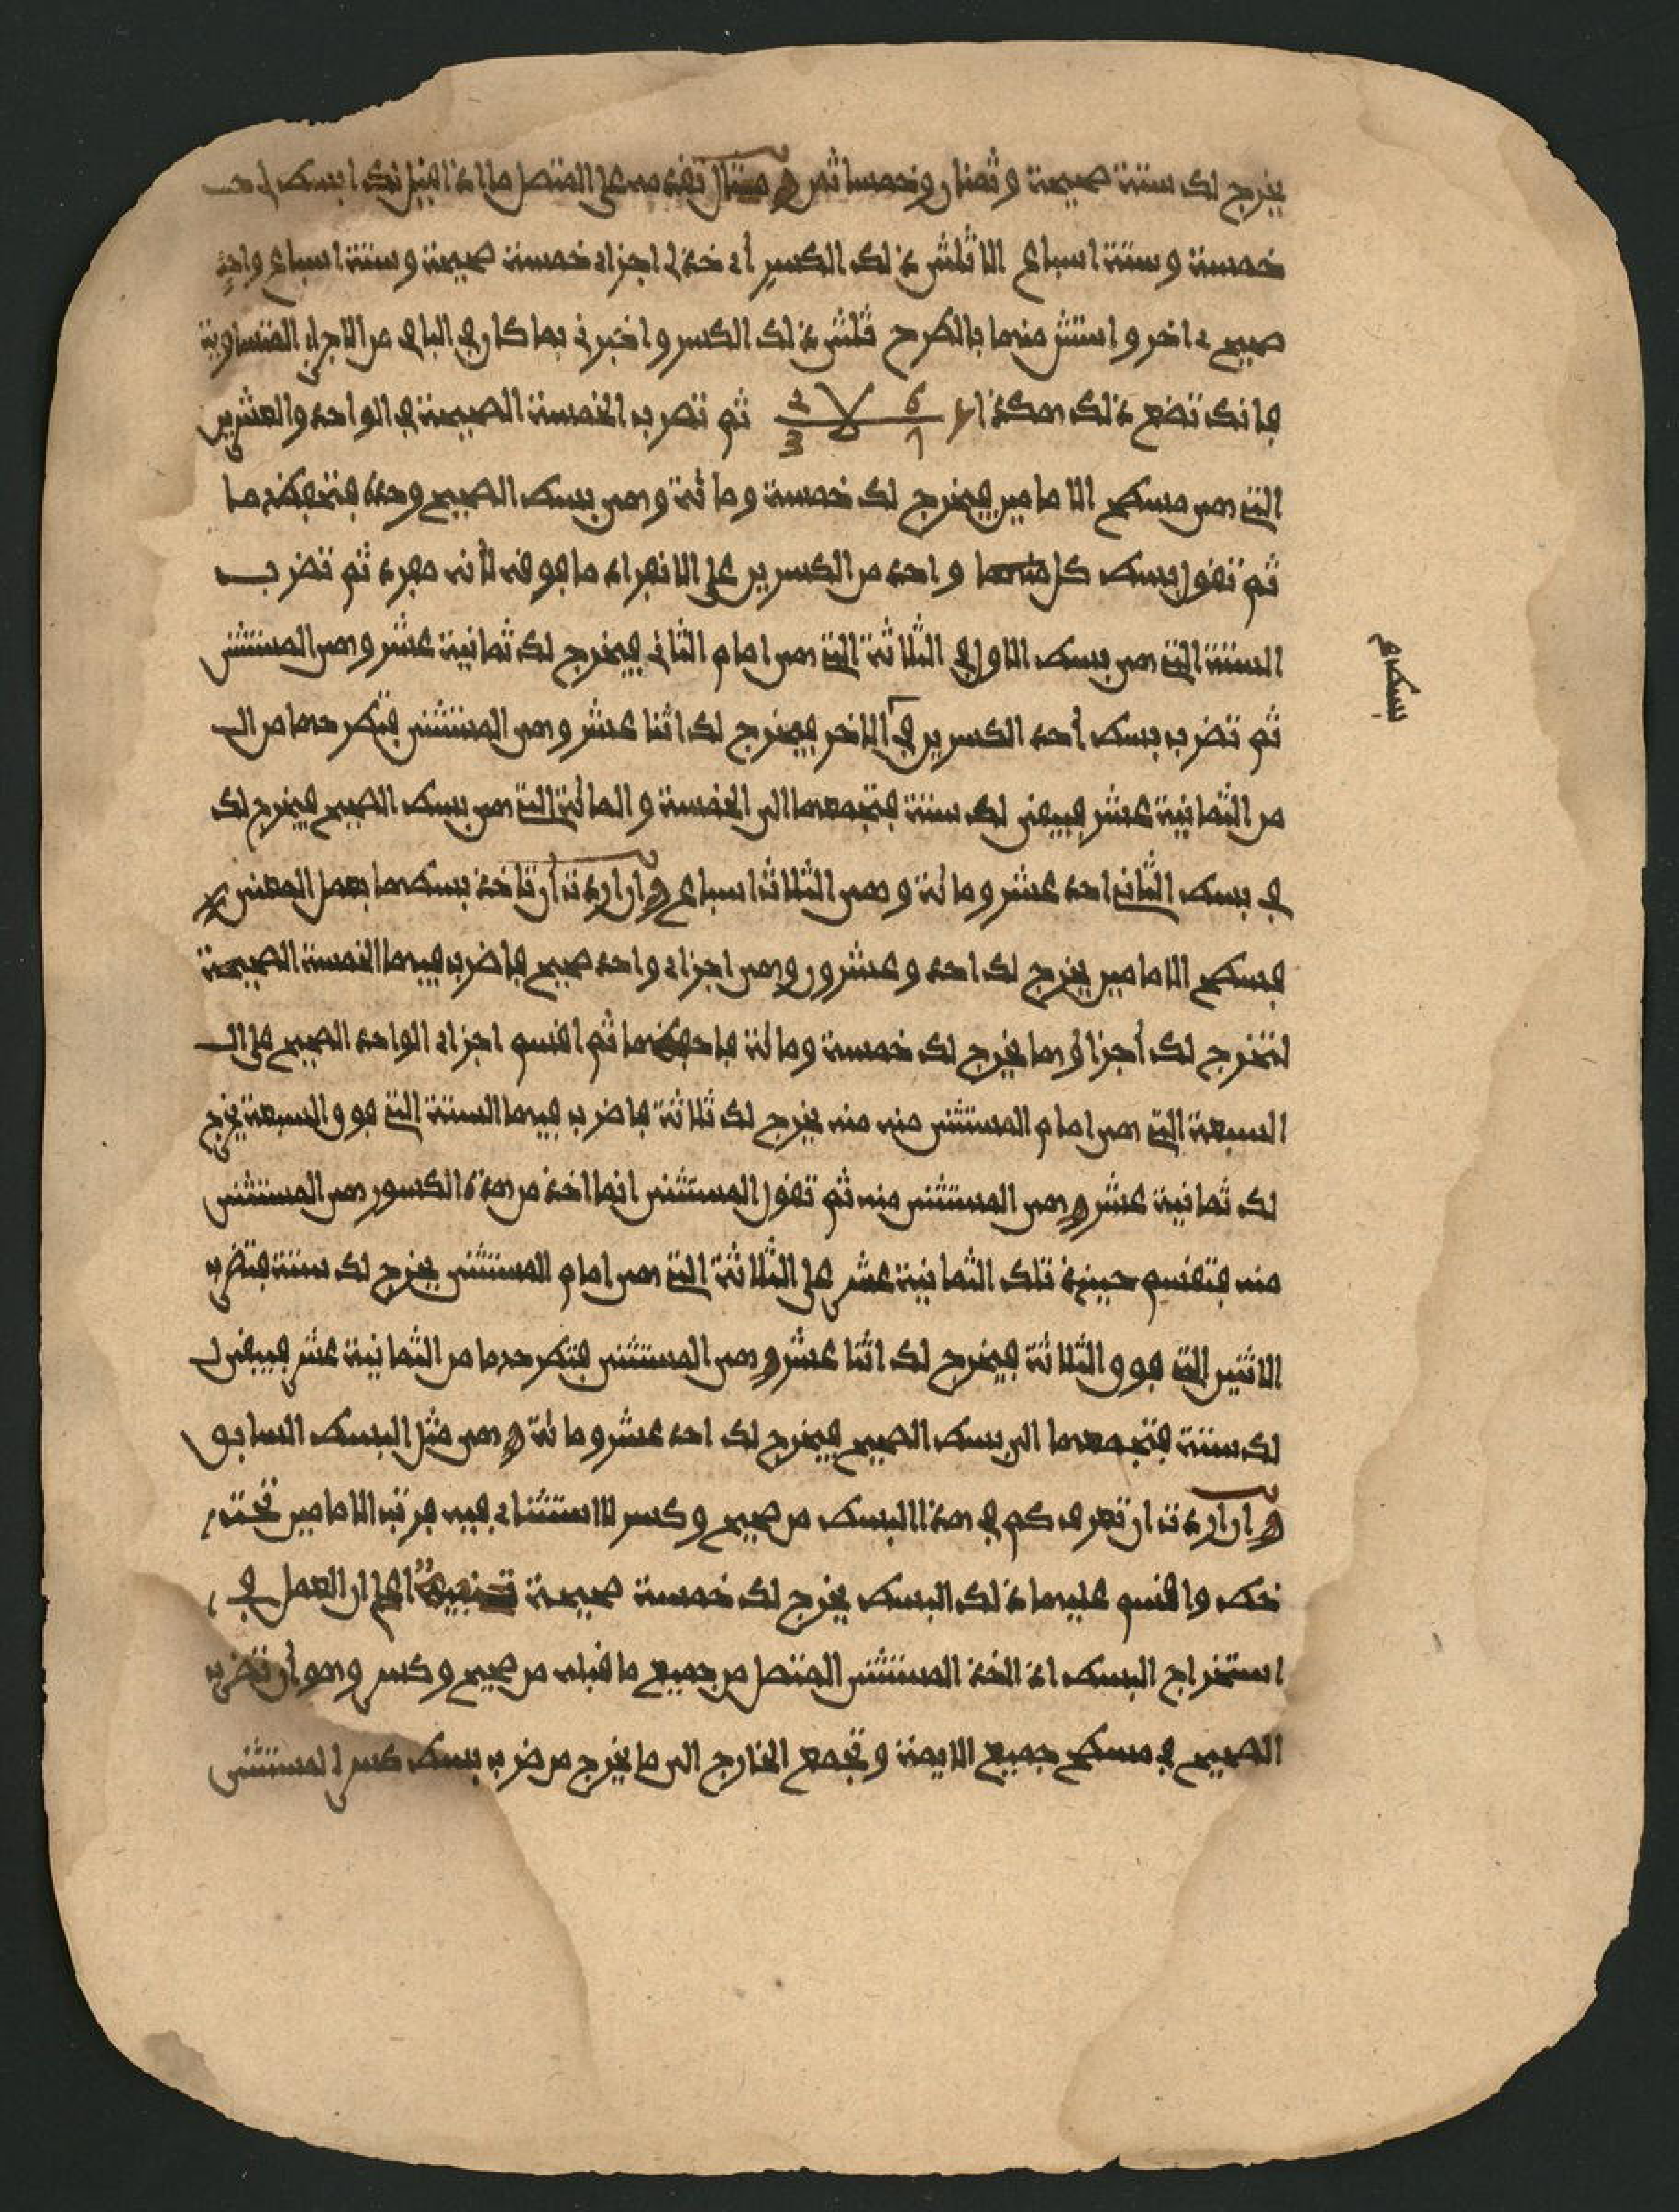 يخرج لك ستة صحيحة وثمنان وخمسا ثمن ومثال تقدمه على المتصل ما اذا قيل لك ابسط لي
خمسة وستة اسباع الا ثلثي ذلك الكسر أي خذ لي اجزاء خمسة صحيحة وستة اسباع واحد
صحيح اخر واستثن منها بالطرح ثلثي ذلك الكسر واخبرني بما كان في الباقي من الاجزاء المتساوية
فانك تضع ذلك هكذا 6 7 لا 2 3 ثم تضرب الخمسة الصحيحة في الواحد والعشرين
التي هي مسطح الامامين فيخرج لك خمسة ومائة وهي بسط الصحيح وحده فتحفظه
ثم تقول بسط كل واحد من الكسرين على الانفراد ما فوقه لأنه مفرد ثم تضرب
الستة التي هي بسط الاول في الثلاثة التي هي امام الثاني فيخرج لك ثمانية عشر وهي المستثنى
ثم تضرب بسط أحد الكسرين في الاخر فيخرج لك اثنا عشر وهي المستثنى فتطرحها من ال
من الثمانية عشر فيبقى لك ستة فتجمعها الى الخمسة والمائة التي هي بسط الصحيح فيخرج لك
في بسط الثاني احد عشر ومائة وهي الثلاثة اسباع وان اردت أن تاخذ بسطها بعمل المعنى
فمسطح الامامين يخرج لك احد وعشرون وهي اجزاء واحد صحيح فاضرب فيها الخمسة الصحيحة
لتخرج لك أجزاؤها يخرج لك خمسة ومائة فاحفظها ثم اقسم اجزاء الواحد الصحيح على ال
السبعة التي هي امام المستثنى منه منه يخرج لك ثلاثة فاضرب فيها الستة التي فوق السبعة يخرج
لك ثمانية عشر وهي المستثنى منه ثم تقول المستثنى انما اخذ من هذا الكسور هي المستثنى
منه فتقسم حينئذ تلك الثمانية عشر على الثلاثة التي هي امام المستثنى يخرج لك ستة فتضرب
الاثنين التي فوق الثلاثة فيخرج لك اثنا عشر وهي المستثنى فتطرحها من الثمانية عشر فيبقى ل
لك ستة فتجمعها الى بسط الصحيح فيخرج لك احد عشر ومائة وهي مثل البسط السابق
وان اردت ان تعرف كم في هذا البسط من صحيح وكسر لا استثناء فيه فرتب الامامين تحت
خط واقسم عليهما ذلك البسط يخرج لك خمسة صحيحة تنبيه اعلم ان العمل في
استخراج البسط اذا اخذ المستثنى المتصل من جميع ما قبله من صحيح وكسر وهو أن تضرب
الصحيح في مسطح جميع الايمة وتجمع الخارج الى ما يخرج من ضرب بسط كسر المستثنى
بسطح